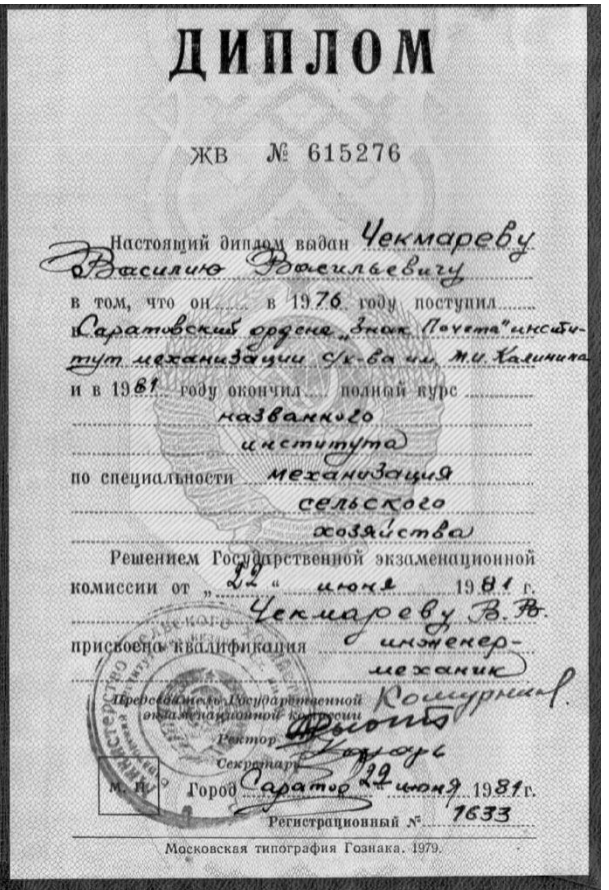 ДИПЛОМ
ЖВ № 615276
Настоящий диплом выдан Чекмареву
Василию Васильевичу
в том, что он в 1976 году поступил
в Саратовский ордена „Знак Почета" инсти-
тут механизации с/х-ва им. М.И. Калинина
и в 1981 году окончил полный курс
названного
института
по специальности механизация
сельского
хозяйства
Решением Государственной экзаменационной
комиссии от „22" июня 1981 г.
Чекмареву В.В.
присвоена квалификация инженер-
механик
Председатель Государственной
экзаменационной комиссии
Ректор
Секретарь
М. П.
Город Саратов 22 июня 1981 г.
Регистрационный № 1633
Московская типография Гознака. 1979.